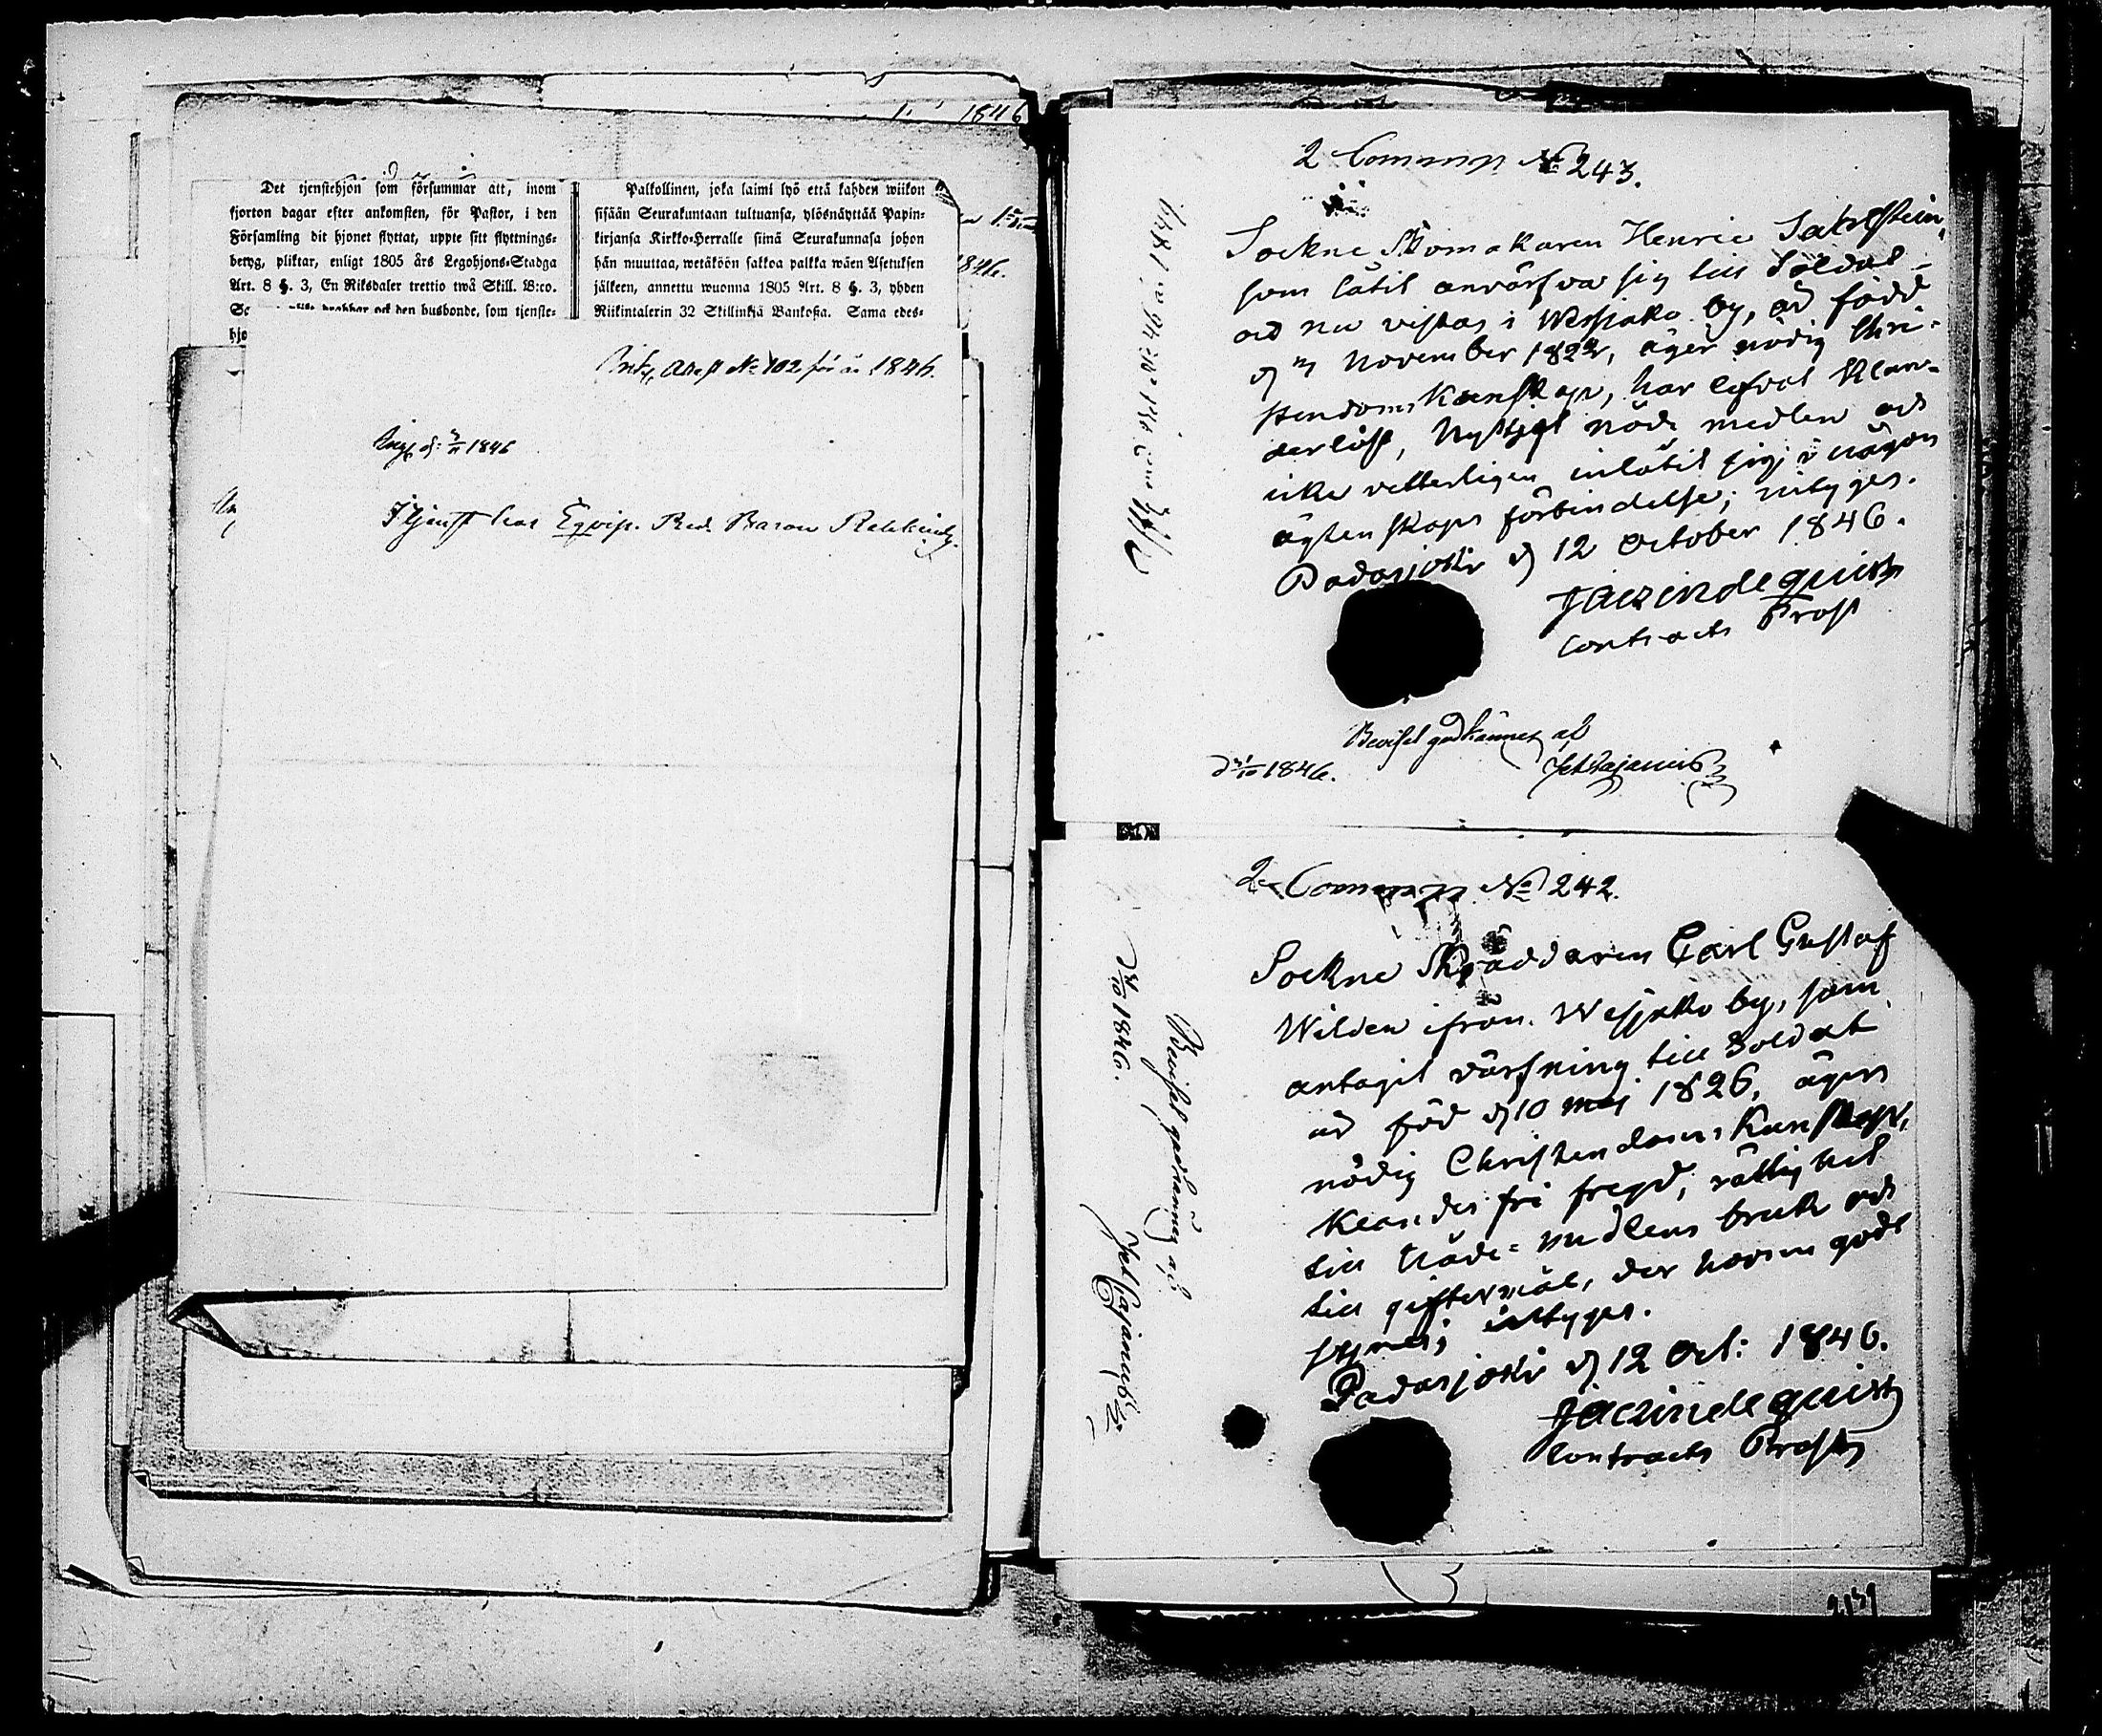 1846
Det tjenstehjon som försummar att, inom
fjorton dagar efter ankomsten, för Pastor, i den
Församling dit hjonet flyttat, uppte sitt flyttnings-
betyg, pliktar, enligt 1805 års Legohjons-Stadga
Art. 8 §. 3, En Riksdaler trettio twå Skill. B:co.
den husbonde, som tjenste-
hjo
Palkollinen, joka laimi lyö että kahden wiikon
sisään Seurakuntaan tultuansa, ylösnäyttää Papin-
kirjansa Kirkko-Herralle siinä Seurakunnasa johon
hän muuttaa, wetäköön sakkoa palkka wäen Asetuksen
jälkeen, annettu wuonna 1805 Art. 8 §. 3, yhden
Riikintalerin 32 Skillinkiä Bankosa. Sama edes-
1846.
Attest No 102 för år 1846.
1846
I tjenst hos Equip. Red. Baron Rehbinder
2 Commp No 243.
Sockne Skomakaren Henric Sabelstein,
som låtit anvärfva sig till Soldat
och nu vistas i Wesijako by, är född
d November 1822, äger nödig Chri-
stendoms Kunskap, har lefvat Klan-
derlöst, Nyttjat nåde medlen och
icke vetterligen inlåtit sig i någon
ägtenskaps förbindelse; intyges.
Padasjoki d 12 October 1846.
Contracts Prost
Beviset godkännes af
1846. Cajanus
2 Commp No 242.
Sockne Skräddaren Carl Gustaf
Wilden ifrån Wesijako by, som
antagit värfning till Soldat
är född d 10 maj 1826, äger
nödig Christendoms Kunskap,
Klander fri fregd, rättighet
till Nåde-medlens bruk och
till giftermål, der honom godt
synes; intyges.
Padasjoki d 12 Oct: 1846.
Contracts Prost
Beviset godkännes af
1846. Cajanus